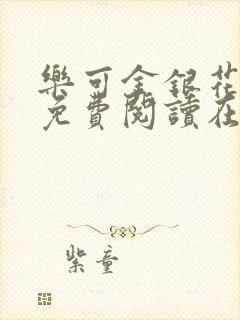 樂可金銀花
免費閱讀在
紫童